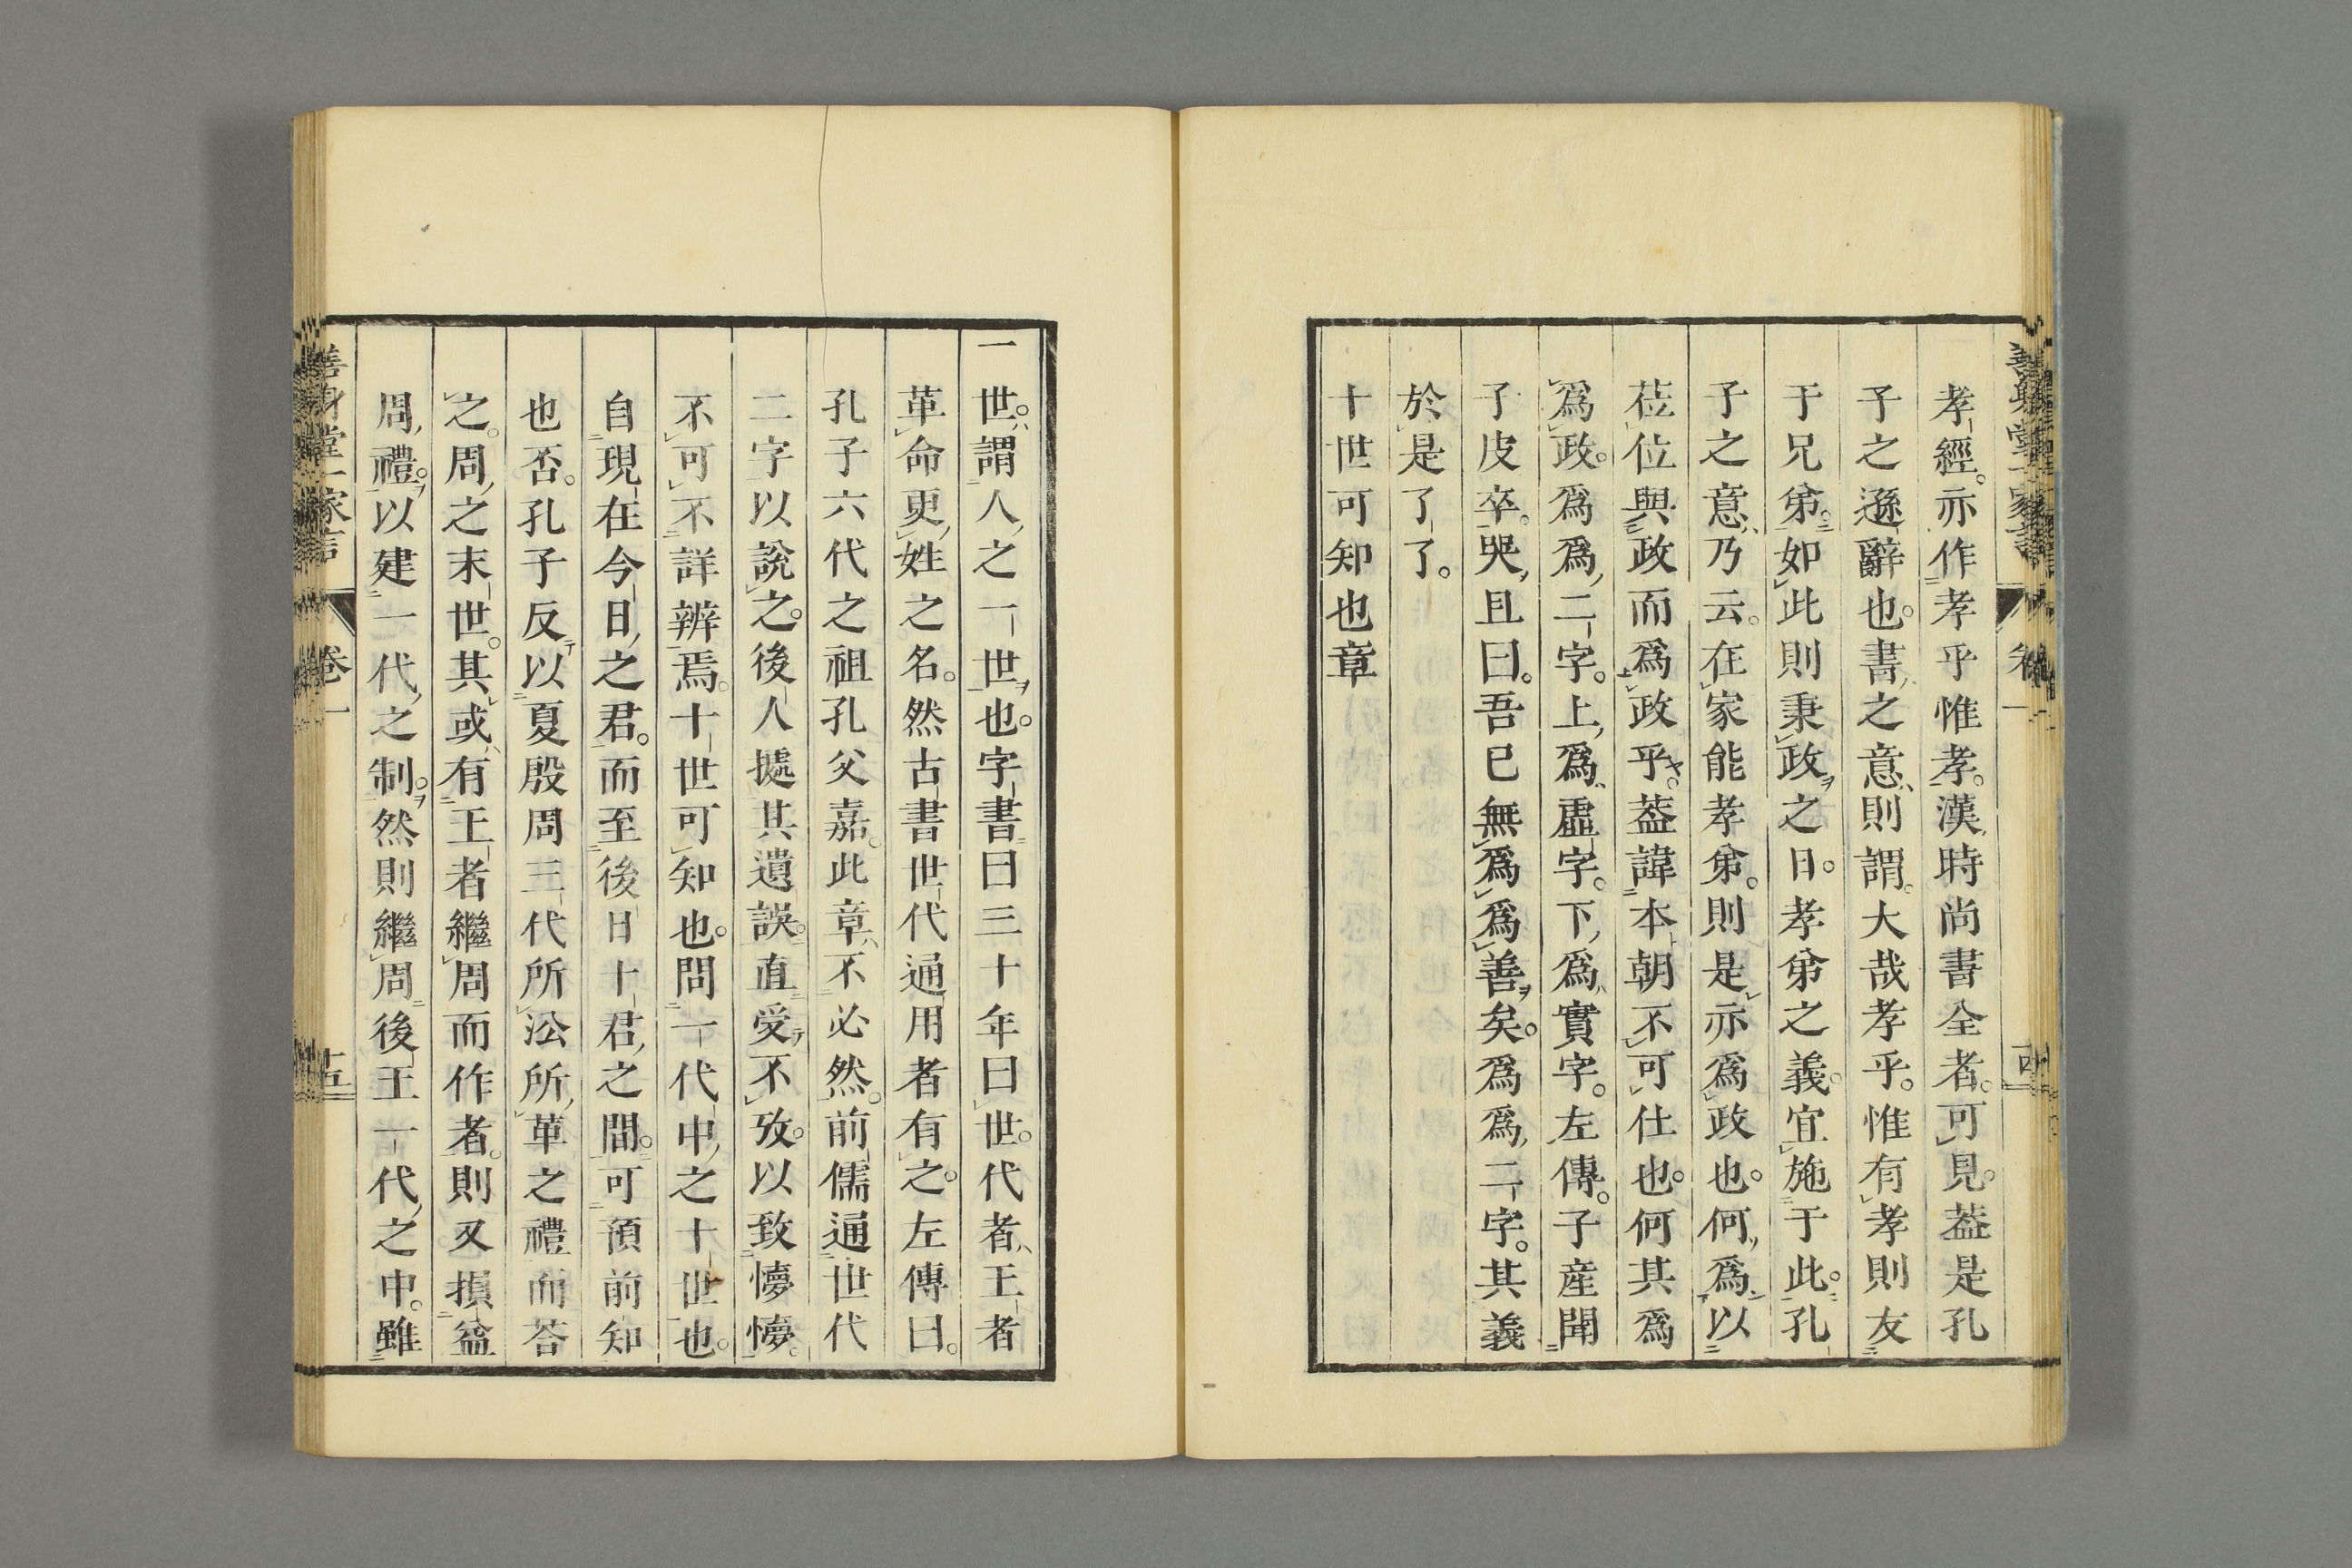 孝經。亦作孝乎惟孝。漢時尚書全者。可見。葢是孔
子之遜辭也。書之意則謂。大哉孝乎。惟有孝則友
于兄弟。如此則秉政之日。孝弟之義。宜施于此。孔
子之意。乃云。在家能孝弟。則是亦爲政也。何爲以
莅位與政而爲政乎。葢諱本朝不可仕也。何其爲
爲政。爲爲二字。上爲虛字。下爲實字。左傳。子產聞
子皮卒。哭且曰。吾已無爲爲善矣。爲爲二字。其義
於是了了。
十世可知也章
一世。謂人之一世也。字書曰三十年曰世。代者王者
革命更姓之名。然古書世代通用者有之。左傳曰。
孔子六代之祖孔父嘉。此章不必然。前儒通世代
二字以說之。後人據其遺誤。直受不攷。以致懜懜。
不可不詳辨焉。十世可知也。問一代中之十世也。
自現在今日之君。而至後日十君之間。可預前知
也否。孔子反以夏殷周三代所㳂所革之禮而答
之。周之末世。其或有王者繼周而作者。則又損益
周禮。以建一代之制。然則繼周後王一代之中。雖
善身堂一家言 卷一 十五